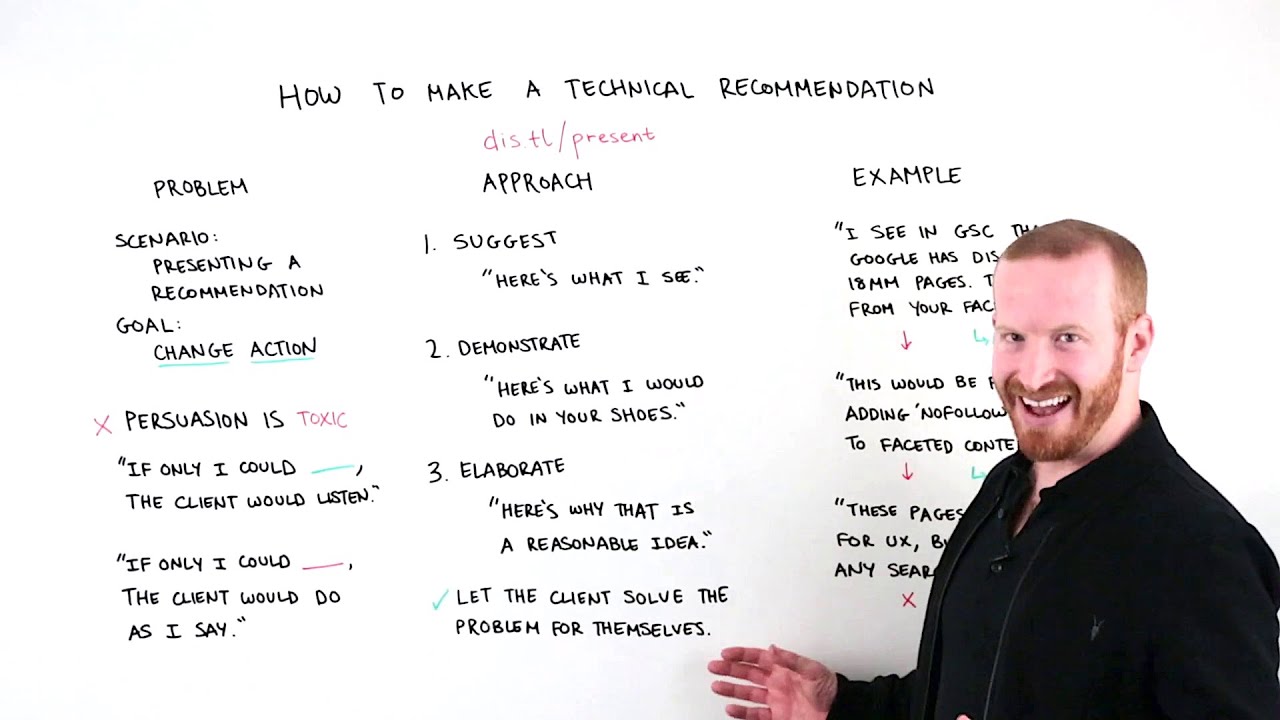 HOW TO MAKE A TECHNICAL RECOMMENDATION
dis.tl/present
PROBLEM
SCENARIO:
PRESENTING A
RECOMMENDATION
GOAL:
CHANGE ACTION
X PERSUASION IS TOXIC
"IF ONLY I COULD ___,
THE CLIENT WOULD LISTEN."
"IF ONLY I COULD ___,
THE CLIENT WOULD DO
AS I SAY."
APPROACH
1. SUGGEST
"HERE'S WHAT I SEE."
2. DEMONSTRATE
"HERE'S WHAT I WOULD
DO IN YOUR SHOES."
3. ELABORATE
"HERE'S WHY THAT IS
A REASONABLE IDEA."
✓ LET THE CLIENT SOLVE THE
PROBLEM FOR THEMSELVES.
EXAMPLE
"I SEE IN GSC
GOOGLE HAS
18MM PAGES.
FROM YOUR
"THIS WOULD BE
ADDING 'NOFOLLOW
TO FACETED
"THESE PAGES
FOR UX,
ANY
X